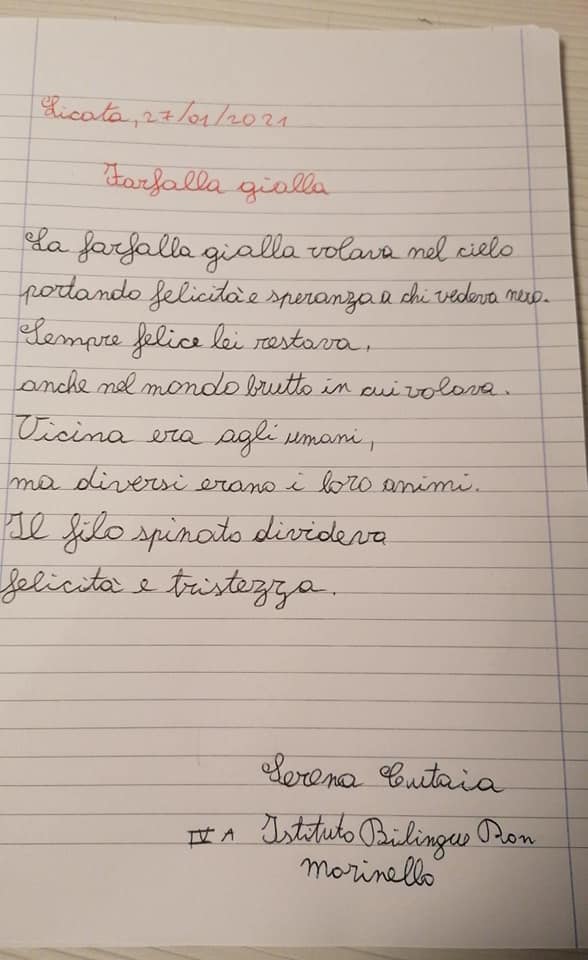 Licata, 27/01/2021
Farfalla gialla
La farfalla gialla volava nel cielo
portando felicità e speranza a chi vedeva nero.
Sempre felice lei restava,
anche nel mondo brutto in cui volava.
Vicina era agli umani,
ma diversi erano i loro animi.
Il filo spinato divideva
felicità e tristezza.
Serena Cutaia
IV A Istituto Bilingue Ron
Morinello